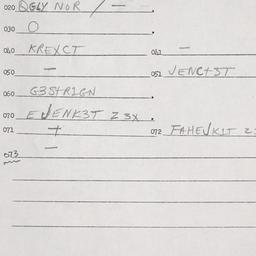 020 QGLY NOR / —
030 O
040 KREXCT 041 —
050 — 051 JENCT3T
060 G3STRIGN
070 EJENK3T Z3X
071 + 072 FAHEJKIT
073 —